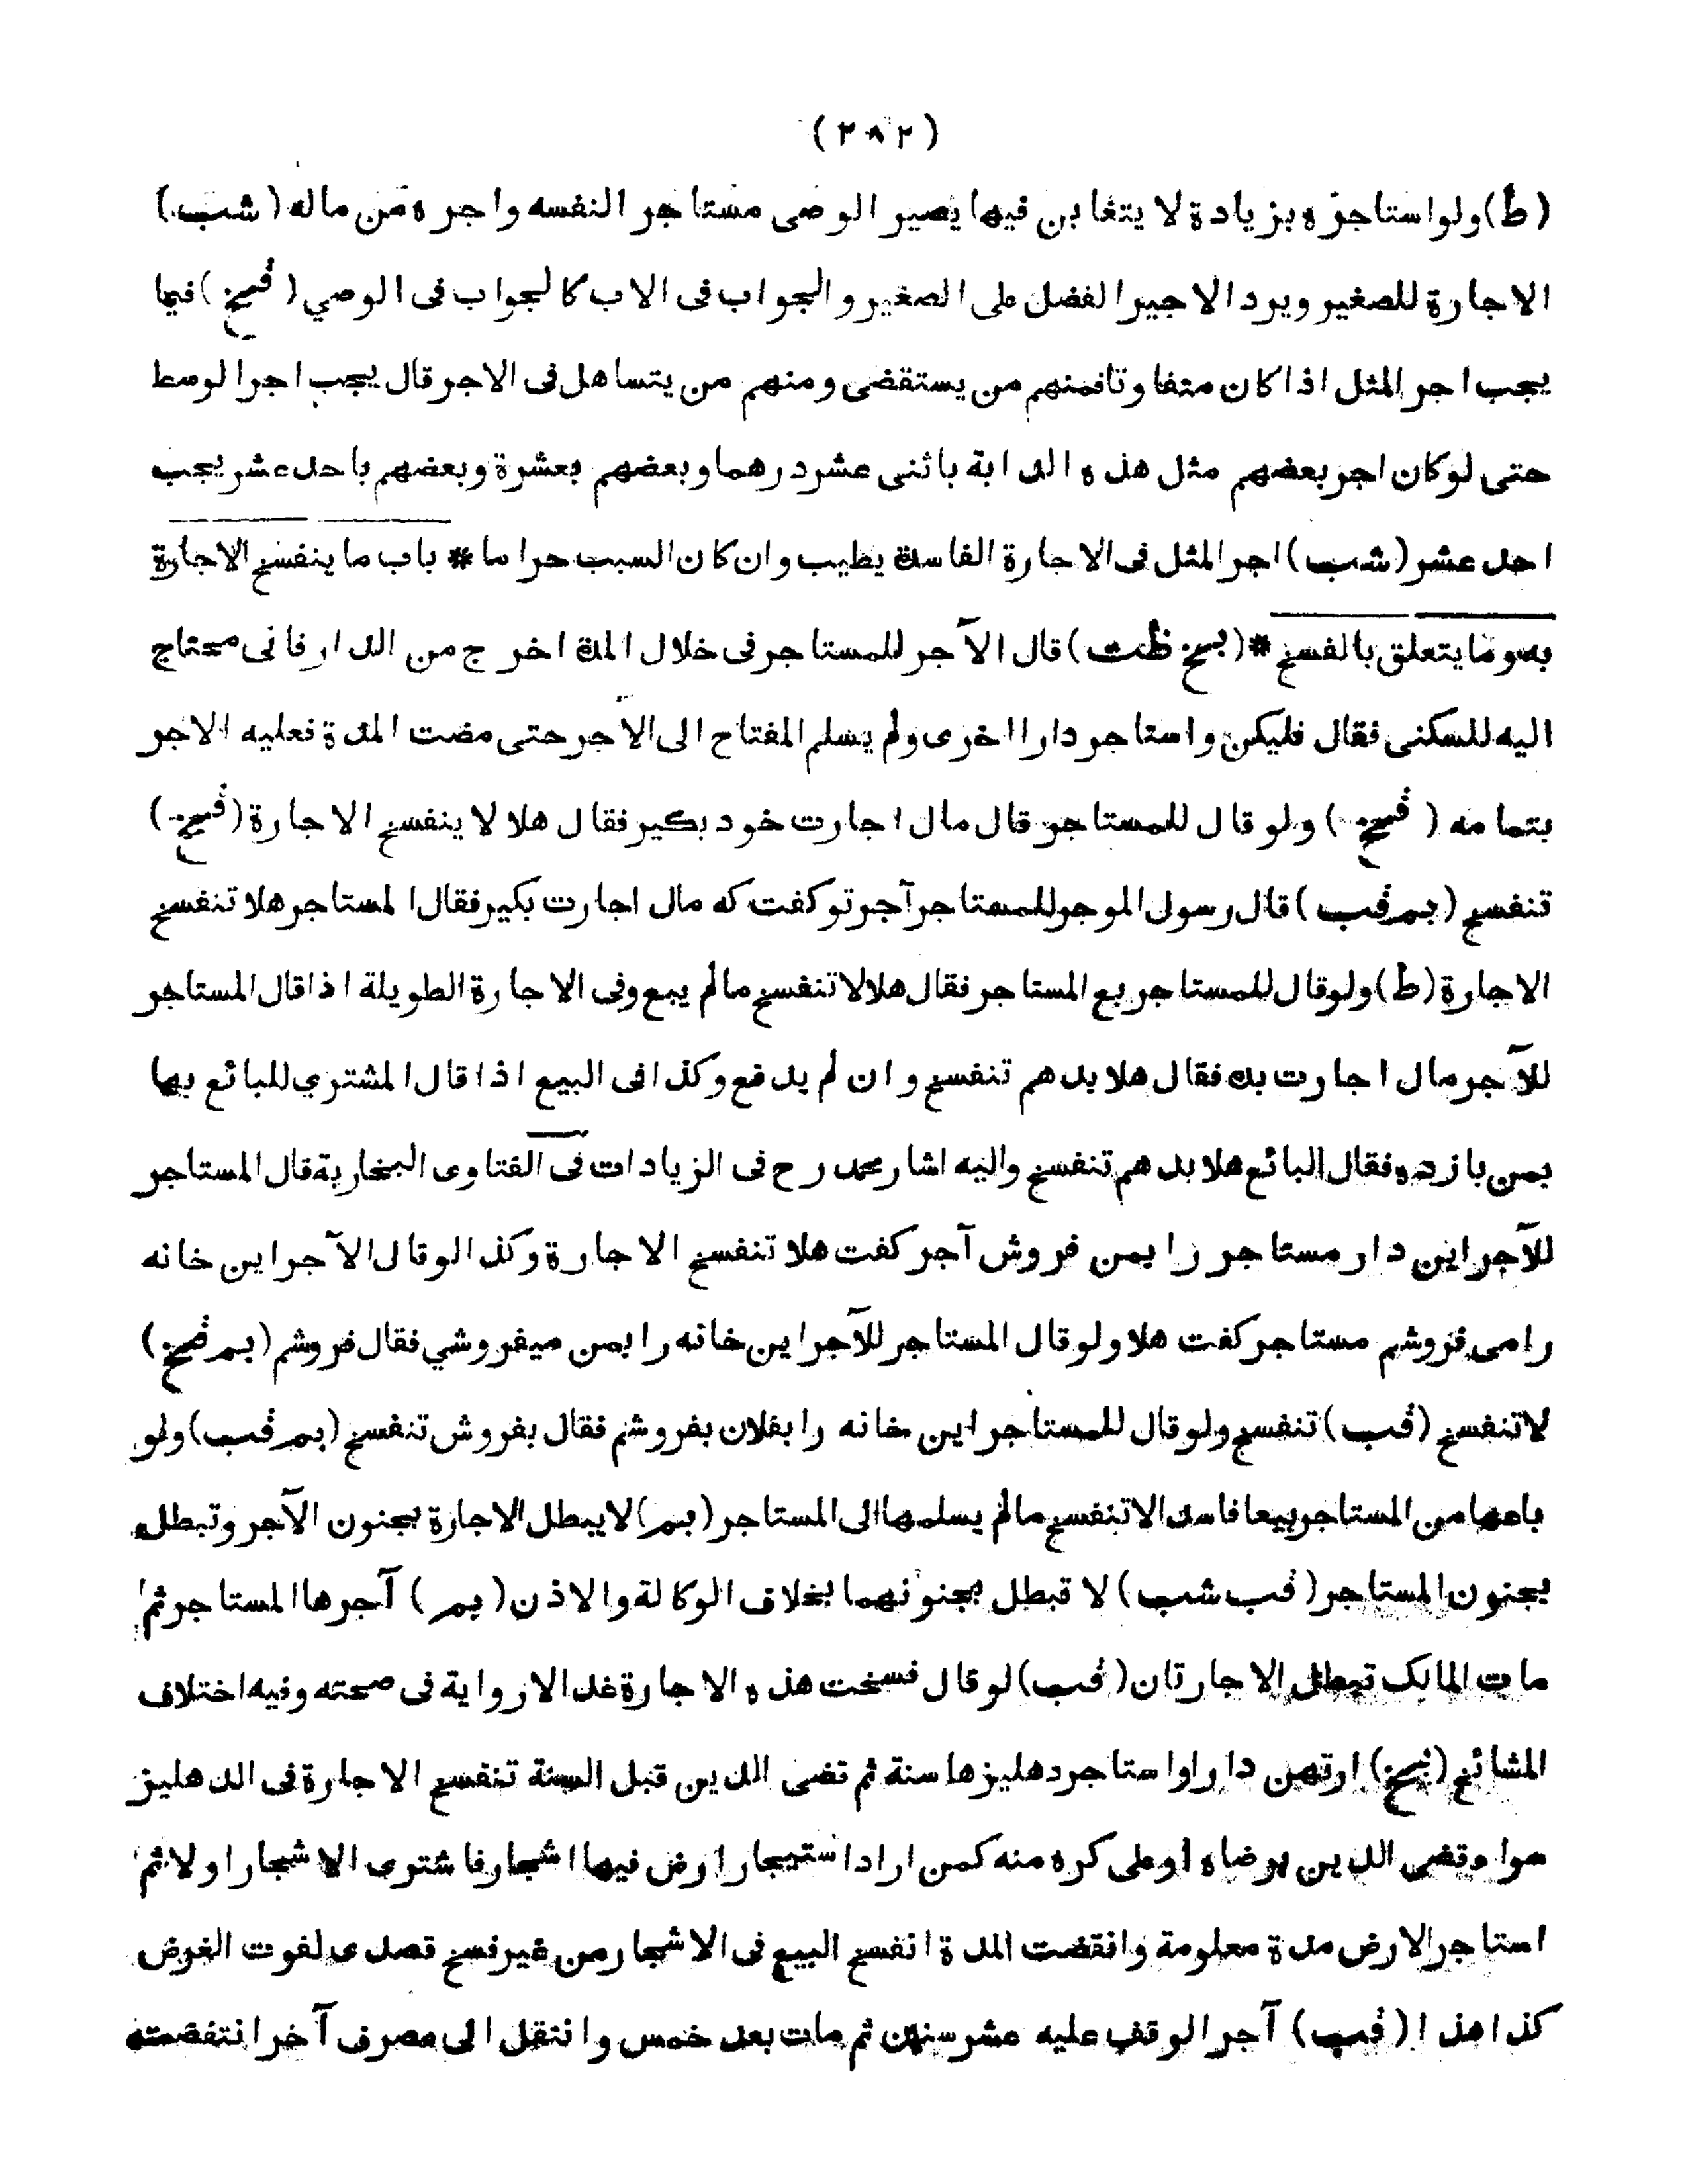 (٣٨٢)
(ط) ولو استاجره بزيادة لا يتغابن فيها يصير الوصى مستاجرا لنفسه واجره من ماله (شب)
الاجارة للصغير ويرد الاجير الفضل على الصغير والجواب فى الاب كالجواب فى الوصي (فسخ) فيما
يجب اجر المثل اذا كان متفاوتا فمنهم من يستقضى ومنهم من يتساهل فى الاجر قال يجب اجر الوسط
حتى لو كان اجر بعضهم مثل هذه الدابة باثنى عشر درهما وبعضهم بعشرة وبعضهم باحد عشر يجب
احد عشر (شب) اجر المثل فى الاجارة الفاسدة يطيب وان كان السبب حراما * باب ما ينفسخ الاجارة
به وما يتعلق بالفسخ * (بخ ظت) قال الآجر للمستاجر فى خلال المدة اخرج من الدار فانى محتاج
اليه للسكنى فقال فليكن واستاجر دارا اخرى ولم يسلم المفتاح الى الآجر حتى مضت المدة فعليه الاجر
بتمامه ( ) ولو قال للمستاجر قال مال اجارت خود بكير فقال هلا لا ينفسخ الاجارة ( )
تنفسخ (بم قب) قال رسول الموجر للمستاجر آجر تو كفت كه مال اجارت بكير فقال المستاجر هلا تنفسخ
الاجارة (ط) ولو قال للمستاجر بع المستاجر فقال هلا لا تنفسخ ما لم يبع وفى الاجارة الطويلة اذا قال المستاجر
للآجر مال اجارت بده فقال هلا بدهم تنفسخ وان لم يدفع وكذا فى البيع اذا قال المشتري للبائع بها
بمن باز ده فقال البائع هلا بدهم تنفسخ واليه اشار محمد رح فى الزيادات فى الفتاوى البخارية قال المستاجر
للآجر اين دار مستاجر را بمن فروش آجر كفت هلا تنفسخ الاجارة وكذا لو قال الآجر اين خانه
را مى فروشم مستاجر كفت هلا ولو قال المستاجر للآجر اين خانه را بمن ميفروشي فقال فروشم (بم )
لا تنفسخ (قب) تنفسخ ولو قال للمستاجر اين خانه را بفلان بفروشم فقال بفروش تنفسخ (بم قب) ولو
باعها من المستاجر بيعا فاسدا لا تنفسخ ما لم يسلمها الى المستاجر (بم) لا يبطل الاجارة بجنون الآجر وتبطل
بجنون المستاجر (قب شب) لا تبطل بجنونهما بخلاف الوكالة والاذن (بم) آجرها المستاجر ثم
مات المالك تبطل الاجارتان (قب) لو قال فسخت هذه الاجارة غدا لا رواية فى صحته وفيه اختلاف
المشائخ (بخ) ارتهن دارا واستاجر دهليزها سنة ثم قضى الدين قبل السنة تنفسخ الاجارة فى الدهليز
سواء قضى الدين برضاه او على كره منه كمن اراد استيجار ارض فيها اشجار فاشترى الاشجار اولا ثم
استاجر الارض مدة معلومة وانقضت المدة انفسخ البيع فى الاشجار من غير فسخ قصدى لفوت الغرض
كذا هذا (قب) آجر الوقف عليه عشر سنين ثم مات بعد خمس وانتقل الى مصرف آخر انتقضت